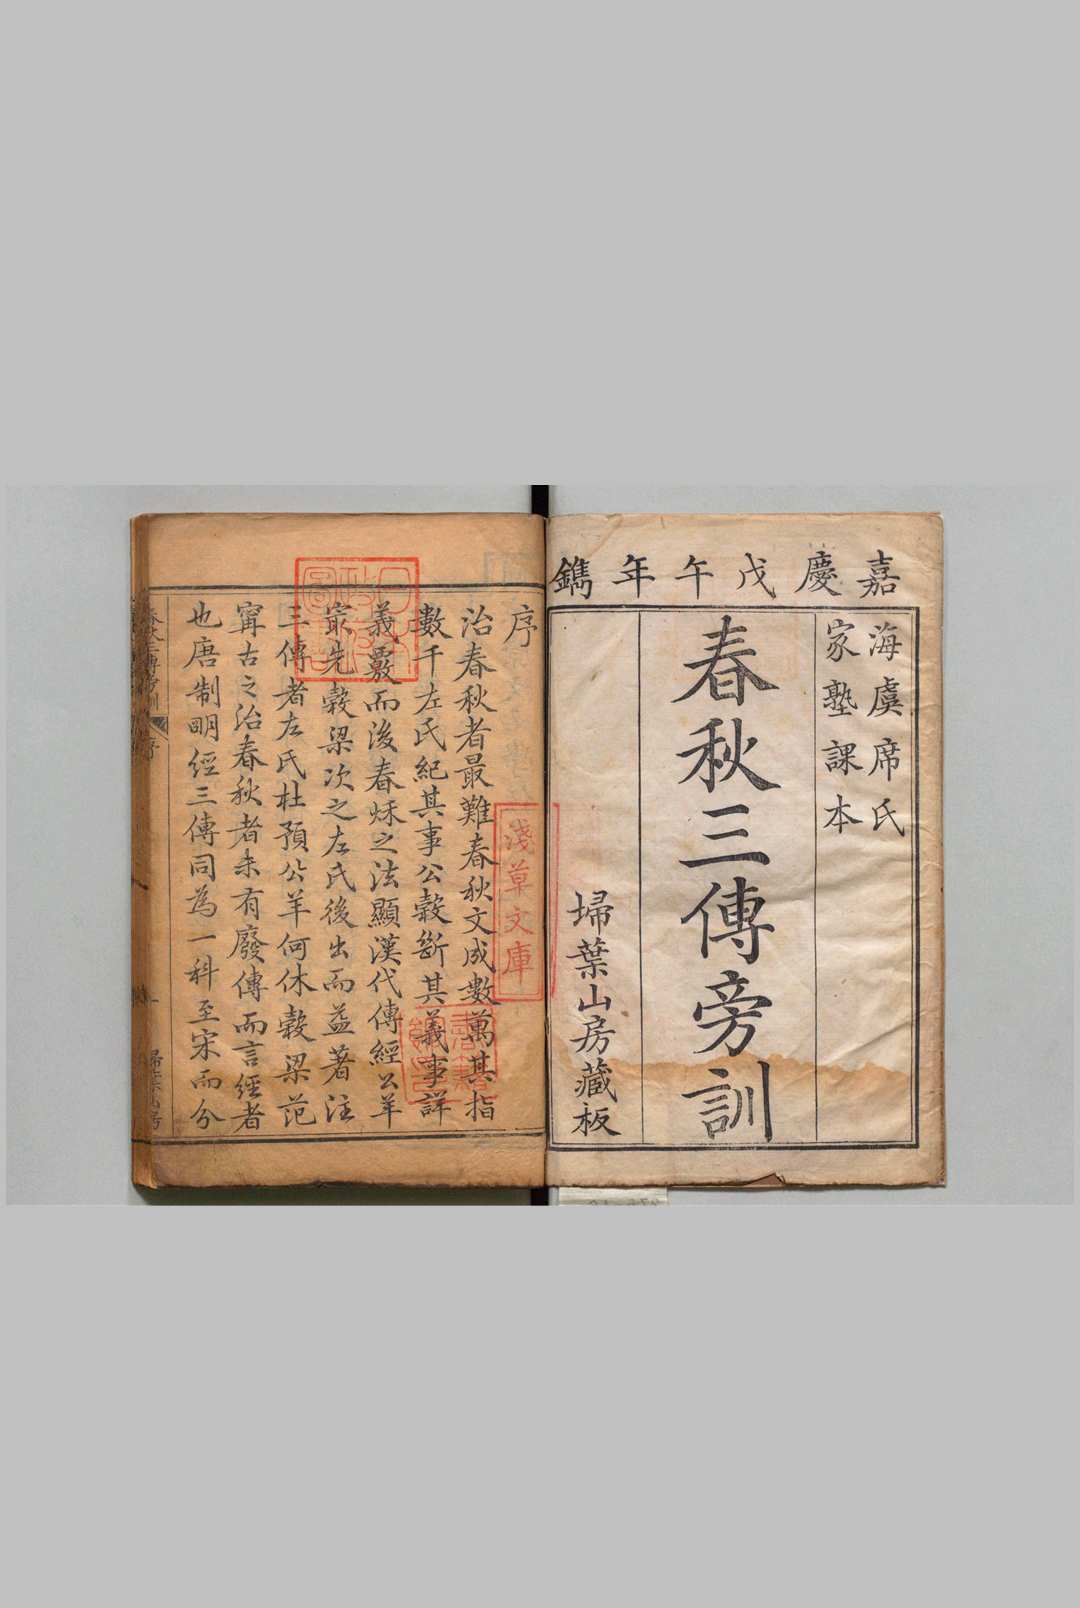 嘉慶戊午年鐫
海虞席氏
家塾課本
春秋三傳旁訓
埽葉山房藏板
序
治春秋者最難春秋文成數萬其指
數千左氏紀其事公穀斷其義事詳
義覈而後春秌之法顯漢代傳經公羊
冣先穀梁次之左氏後出而益著注
三傳者左氏杜預公羊何休穀梁范
甯古之治春秋者未有廢傳而言經者
也唐制明經三傳同為一科至宋而分
淺草文庫
日本政府圖書
春秋三傳旁訓
序
一